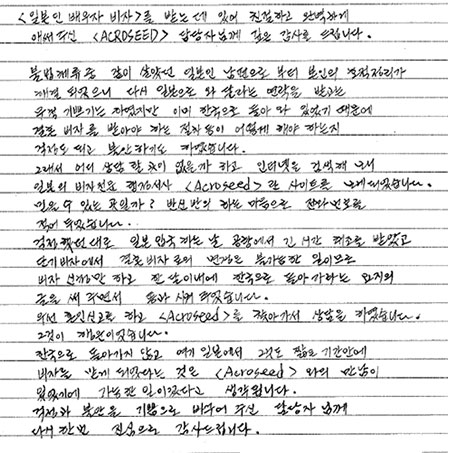 <일본인 배우자 비자>를 받는 데 있어 친절하고 완벽하게
애써주신 <ACROSEED> 담당자님께 깊은 감사를 드립니다.
불법체류 중 같이 살았던 일본인 남편으로 부터 본인의 호적정리가
해결 되었으니 다시 일본으로 와 달라는 연락을 받고는
무척 기쁘기는 하였지만 이미 한국으로 돌아 와 있었기 때문에
결혼 비자를 받아야 하는 절차 등이 어떻게 해야 하는지
걱정도 되고 불안하기도 하였습니다.
그래서 어디 상담 할 곳이 없을까 하고 인터넷을 검색해 보니
일본의 비자전문 행정서사 <Acroseed>란 사이트를 보게 되었습니다.
믿을 수 있는 곳일까? 반신반의 하는 마음으로 전화번호를
적어 두었습니다.
걱정했던 대로 일본 입국 하는 날 공항에서 긴 시간 취조를 받았고
단기비자에서 결혼 비자로의 변경은 불가능한 일이므로
비자 신청만 하고 한 달 이내에 한국으로 돌아 가라는 요지의
글을 써 주면서 돌아 가게 되었습니다.
우선 혼인신고를 하고 <Acroseed>를 찾아가서 상담을 하였습니다.
그것이 해결이었습니다.
한국으로 돌아가지 않고 여기 일본에서 그것도 짧은 기간안에
비자를 받게 되었다는 것은 <Acroseed>와의 만남이
있었기에 가능한 일이었다고 생각됩니다.
걱정과 불안을 기쁨으로 바꾸어 주신 담당자님께
다시 한번 진심으로 감사드립니다.